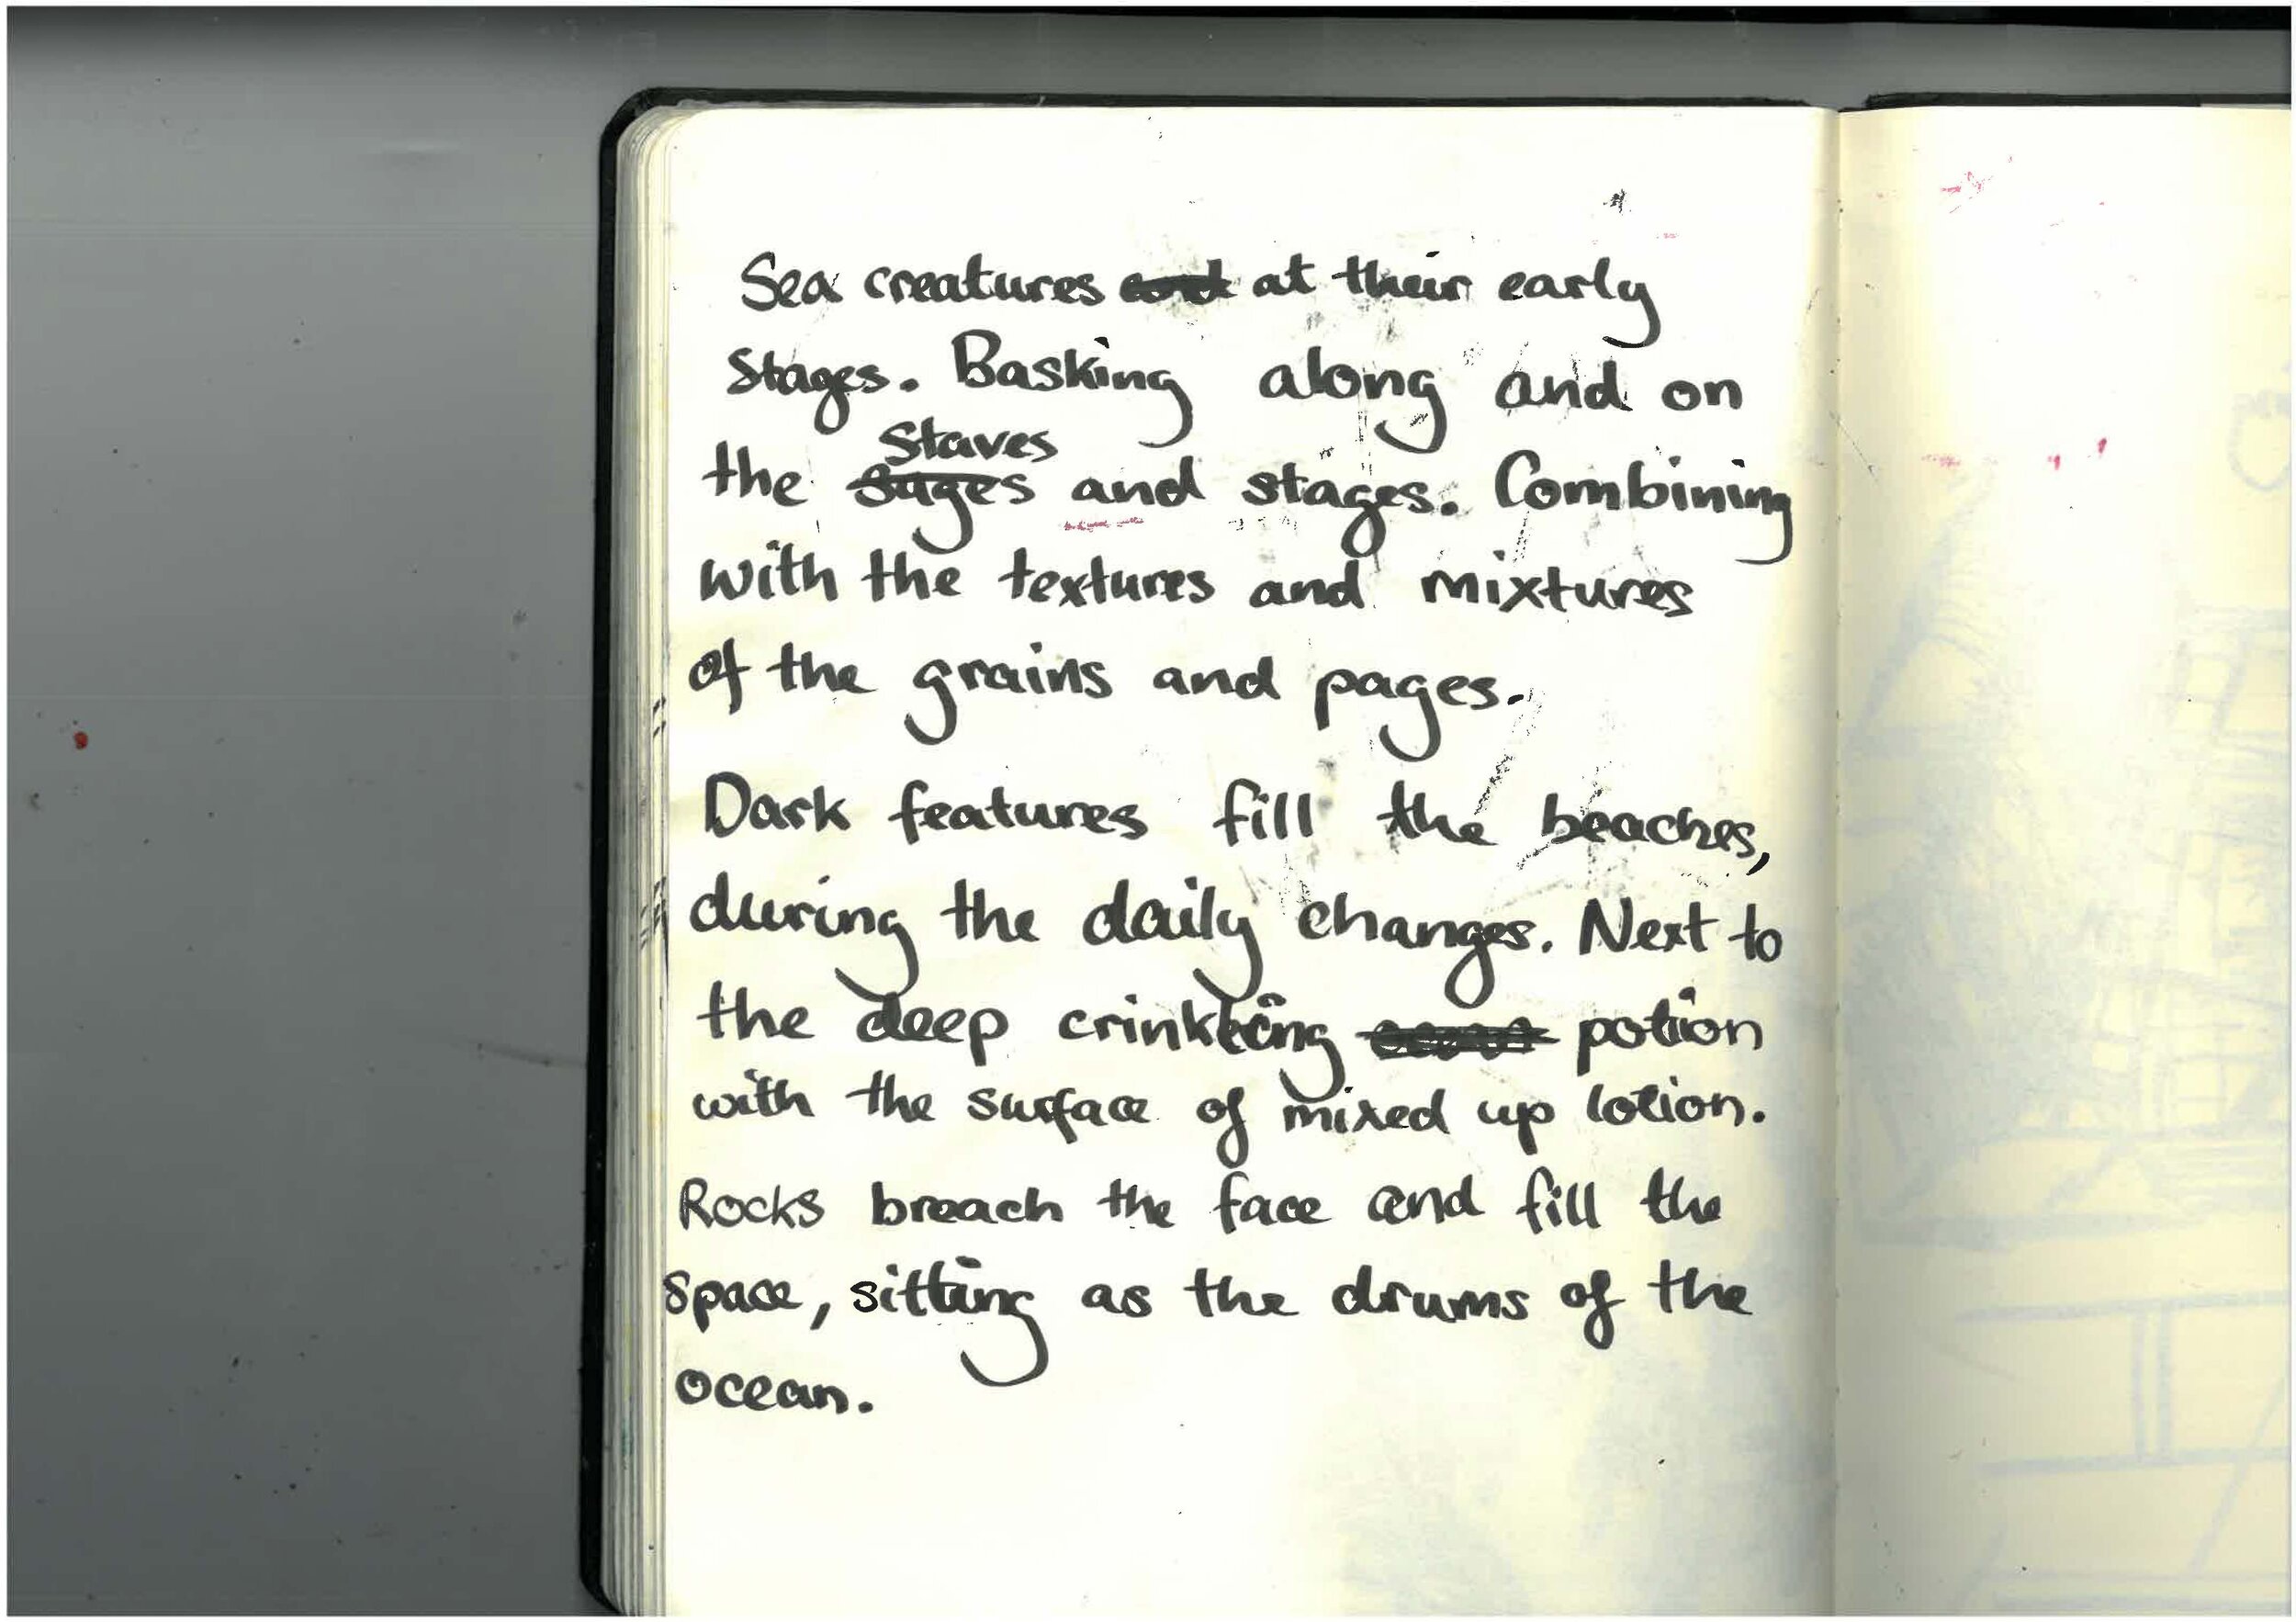 Sea creatures at their early
Stages. Basking along and on
the Staves and stages. Combining
with the textures and mixtures
of the grains and pages.
Dark features fill the beaches,
during the daily changes. Next to
the deep crinkling potion
with the surface of mixed up lotion.
Rocks breach the face and fill the
Space, sitting as the drums of the
ocean.